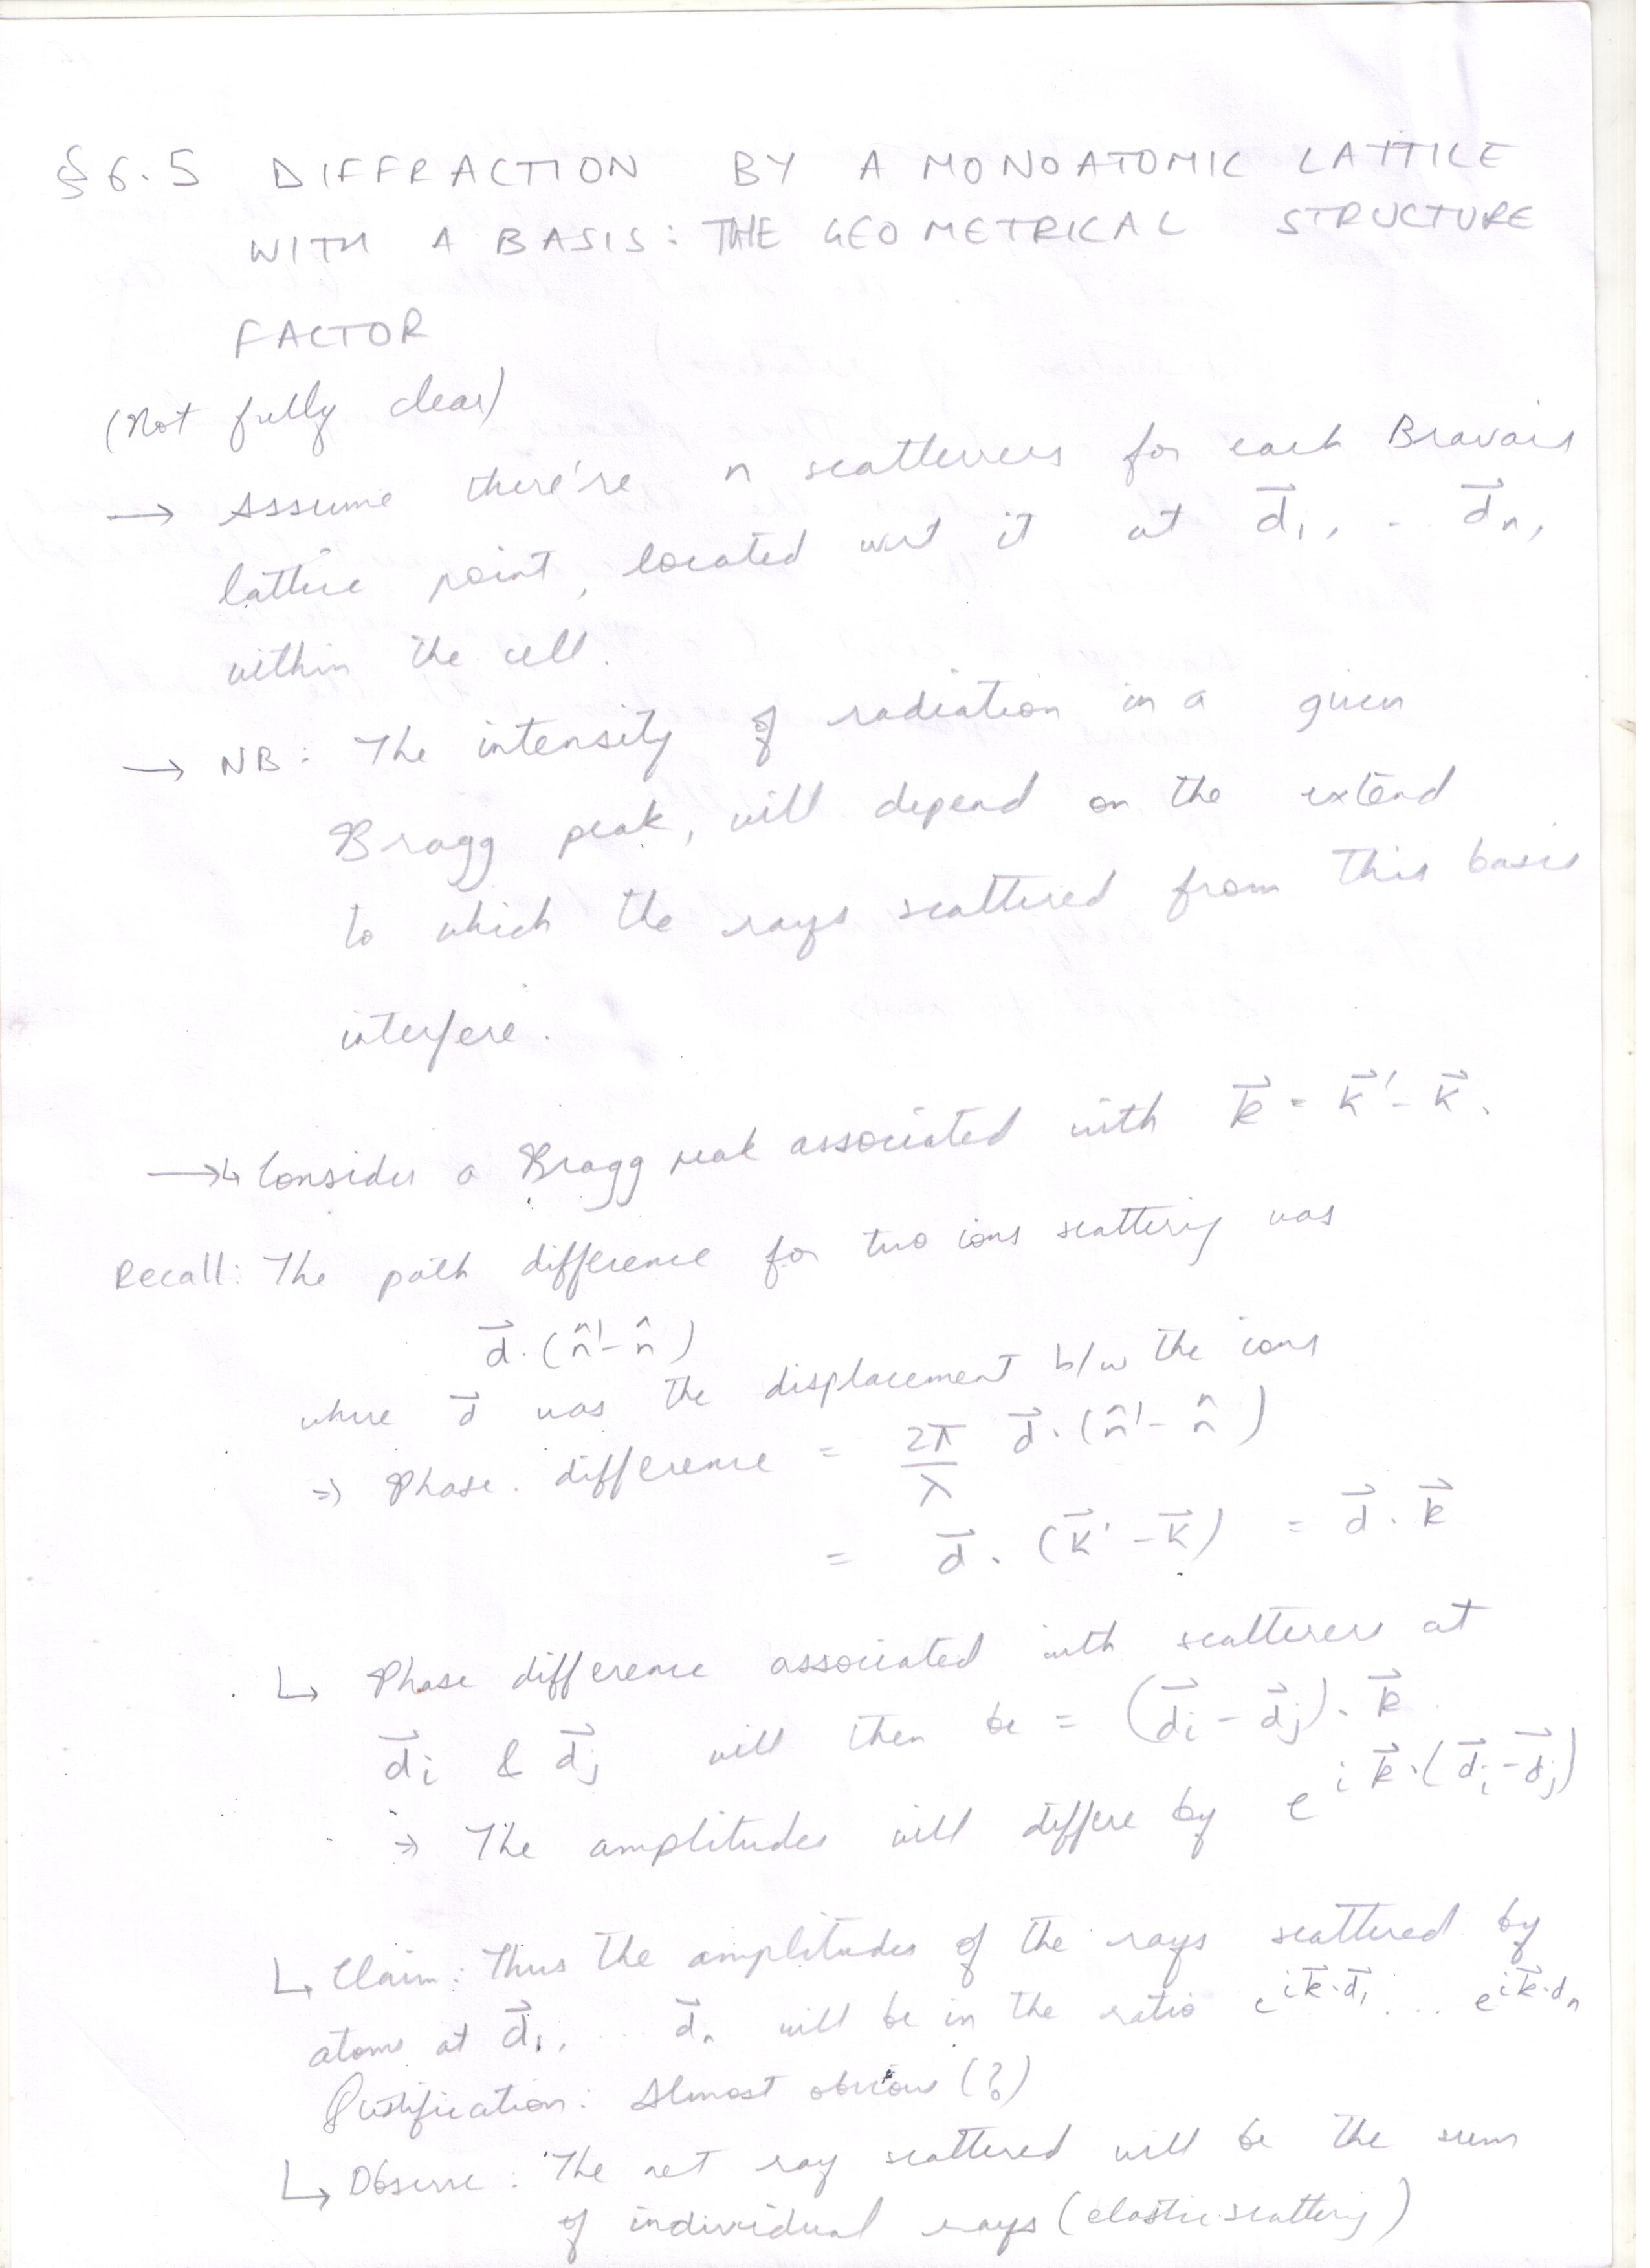 § 6.5 DIFFRACTION BY A MONOATOMIC LATTICE
WITH A BASIS: THE GEOMETRICAL STRUCTURE
FACTOR
(Not fully clear)
→ Assume there're n scatterers for each Bravais
lattice point, located wrt it at d⃗₁, . . d⃗ₙ,
within the cell.
→ NB: The intensity of radiation in a given
Bragg peak, will depend on the extend
to which the rays scattered from this basis
interfere.
→↳ Consider a Bragg peak associated with k⃗ = k⃗' - k⃗.
Recall: The path difference for two ions scattering was
d⃗·(n̂' - n̂)
where d⃗ was the displacement b/w the ions
⇒ Phase difference = 2π/λ d⃗·(n̂' - n̂)
= d⃗·(k⃗' - k⃗) = d⃗·k⃗
↳ Phase difference associated with scatterers at
d⃗ᵢ & d⃗ⱼ will then be = (d⃗ᵢ - d⃗ⱼ)·k⃗
⇒ The amplitudes will differe by e^{i k⃗·(d⃗ᵢ - d⃗ⱼ)}
↳ Claim: Thus the amplitudes of the rays scattered by
atoms at d⃗₁, ... d⃗ₙ will be in the ratio e^{i k⃗·d⃗₁} ... e^{i k⃗·dₙ}
Justification: Almost obvious (?)
↳ Observe: The net ray scattered will be the sum
of individual rays (elastic scattering)